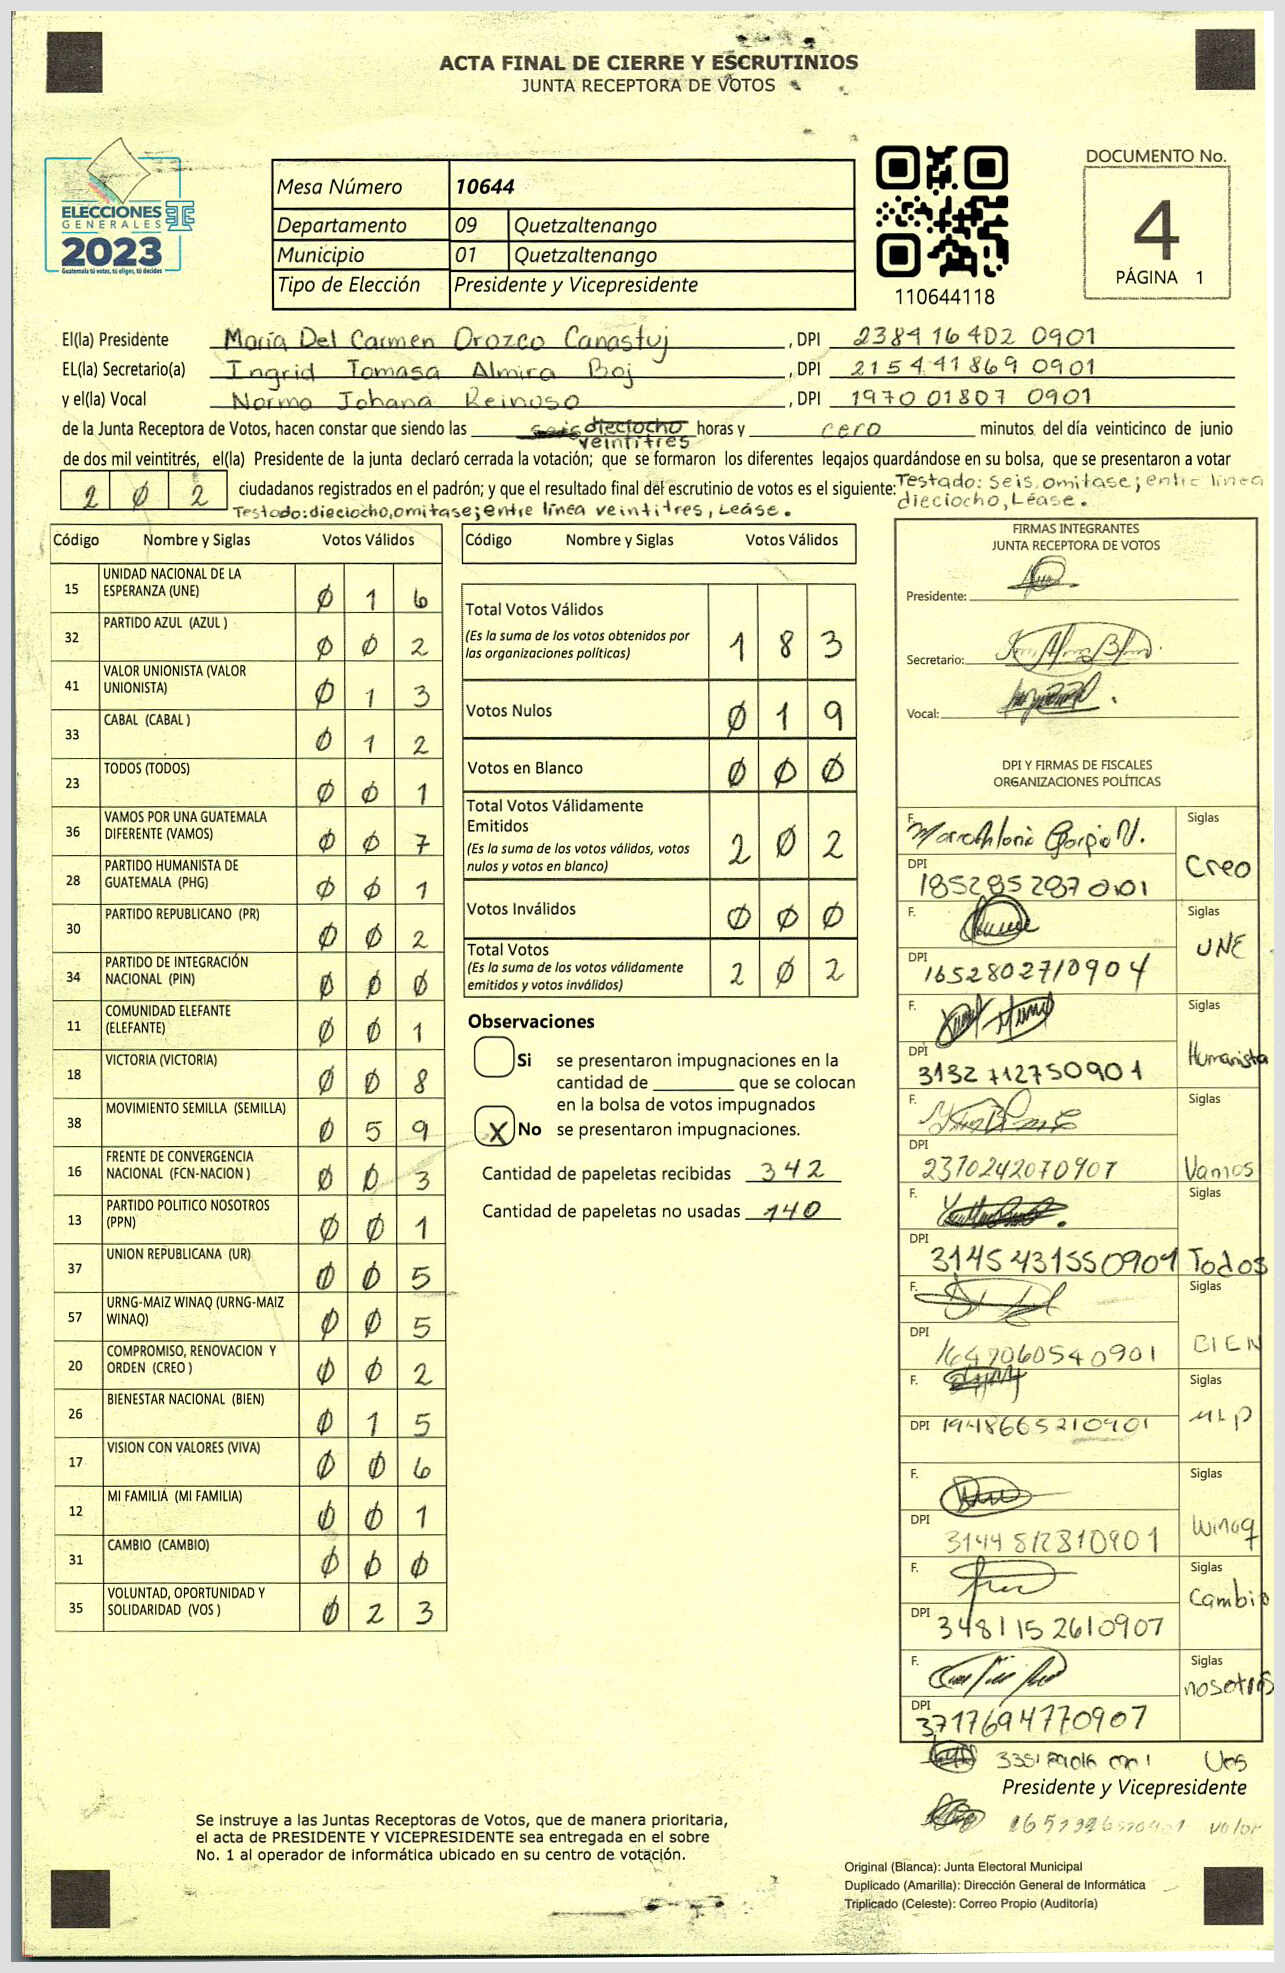 ACTA FINAL DE CIERRE Y ESCRUTINIOS
JUNTA RECEPTORA DE VOTOS
ELECCIONES
GENERALES
2023
Guatemala tú votas, tú eliges, tú decides
Mesa Número 10644
Departamento 09 Quetzaltenango
Municipio 01 Quetzaltenango
Tipo de Elección Presidente y Vicepresidente
110644118
DOCUMENTO No.
4
PÁGINA 1
El(la) Presidente María Del Carmen Orozco Canastuj, DPI 2384 16402 0901
EL(la) Secretario(a) Ingrid Tomasa Almira Boj, DPI 2154 41869 0901
y el(la) Vocal Norma Johana Reinoso, DPI 1970 01807 0901
de la Junta Receptora de Votos, hacen constar que siendo las seis dieciocho horas y cero minutos del día veinticinco de junio
veintitres
de dos mil veintitrés, el(la) Presidente de la junta declaró cerrada la votación; que se formaron los diferentes legajos guardándose en su bolsa, que se presentaron a votar
2 0 2 ciudadanos registrados en el padrón; y que el resultado final del escrutinio de votos es el siguiente: Testado: seis, omitase; entre linea
dieciocho, Léase.
Testado: dieciocho, omitase; entre línea veintitres, Léase.
Código Nombre y Siglas Votos Válidos
15 UNIDAD NACIONAL DE LA ESPERANZA (UNE) 0 1 6
32 PARTIDO AZUL (AZUL ) 0 0 2
41 VALOR UNIONISTA (VALOR UNIONISTA) 0 1 3
33 CABAL (CABAL ) 0 1 2
23 TODOS (TODOS) 0 0 1
36 VAMOS POR UNA GUATEMALA DIFERENTE (VAMOS) 0 0 7
28 PARTIDO HUMANISTA DE GUATEMALA (PHG) 0 0 1
30 PARTIDO REPUBLICANO (PR) 0 0 2
34 PARTIDO DE INTEGRACIÓN NACIONAL (PIN) 0 0 0
11 COMUNIDAD ELEFANTE (ELEFANTE) 0 0 1
18 VICTORIA (VICTORIA) 0 0 8
38 MOVIMIENTO SEMILLA (SEMILLA) 0 5 9
16 FRENTE DE CONVERGENCIA NACIONAL (FCN-NACION ) 0 0 3
13 PARTIDO POLITICO NOSOTROS (PPN) 0 0 1
37 UNION REPUBLICANA (UR) 0 0 5
57 URNG-MAIZ WINAQ (URNG-MAIZ WINAQ) 0 0 5
20 COMPROMISO, RENOVACION Y ORDEN (CREO ) 0 0 2
26 BIENESTAR NACIONAL (BIEN) 0 1 5
17 VISION CON VALORES (VIVA) 0 0 6
12 MI FAMILIA (MI FAMILIA) 0 0 1
31 CAMBIO (CAMBIO) 0 0 0
35 VOLUNTAD, OPORTUNIDAD Y SOLIDARIDAD (VOS ) 0 2 3
Código Nombre y Siglas Votos Válidos
Total Votos Válidos 1 8 3
(Es la suma de los votos obtenidos por
las organizaciones políticas)
Votos Nulos 0 1 9
Votos en Blanco 0 0 0
Total Votos Válidamente
Emitidos 2 0 2
(Es la suma de los votos válidos, votos
nulos y votos en blanco)
Votos Inválidos 0 0 0
Total Votos 2 0 2
(Es la suma de los votos válidamente
emitidos y votos inválidos)
Observaciones
Si se presentaron impugnaciones en la
cantidad de ________ que se colocan
en la bolsa de votos impugnados
X No se presentaron impugnaciones.
Cantidad de papeletas recibidas 342
Cantidad de papeletas no usadas 140
FIRMAS INTEGRANTES
JUNTA RECEPTORA DE VOTOS
Presidente:
Secretario:
Vocal:
DPI Y FIRMAS DE FISCALES
ORGANIZACIONES POLÍTICAS
F. Siglas
DPI 1852852870101 Creo
F. Siglas
DPI 1652802710904 UNE
F. Siglas
DPI 3132712750901 Humanista
F. Siglas
DPI 2370242070907 Vamos
F. Siglas
DPI 3145431550901 Todos
F. Siglas
DPI 1647060540901 BIEN
F. Siglas
DPI 1948665210901 MLP
F. Siglas
DPI 3144512810901 Winaq
F. Siglas
DPI 3481152610907 Cambio
F. Siglas
DPI 3717694770907 nosotros
Vos
Presidente y Vicepresidente
Valor
Se instruye a las Juntas Receptoras de Votos, que de manera prioritaria,
el acta de PRESIDENTE Y VICEPRESIDENTE sea entregada en el sobre
No. 1 al operador de informática ubicado en su centro de votación.
Original (Blanca): Junta Electoral Municipal
Duplicado (Amarilla): Dirección General de Informática
Triplicado (Celeste): Correo Propio (Auditoría)